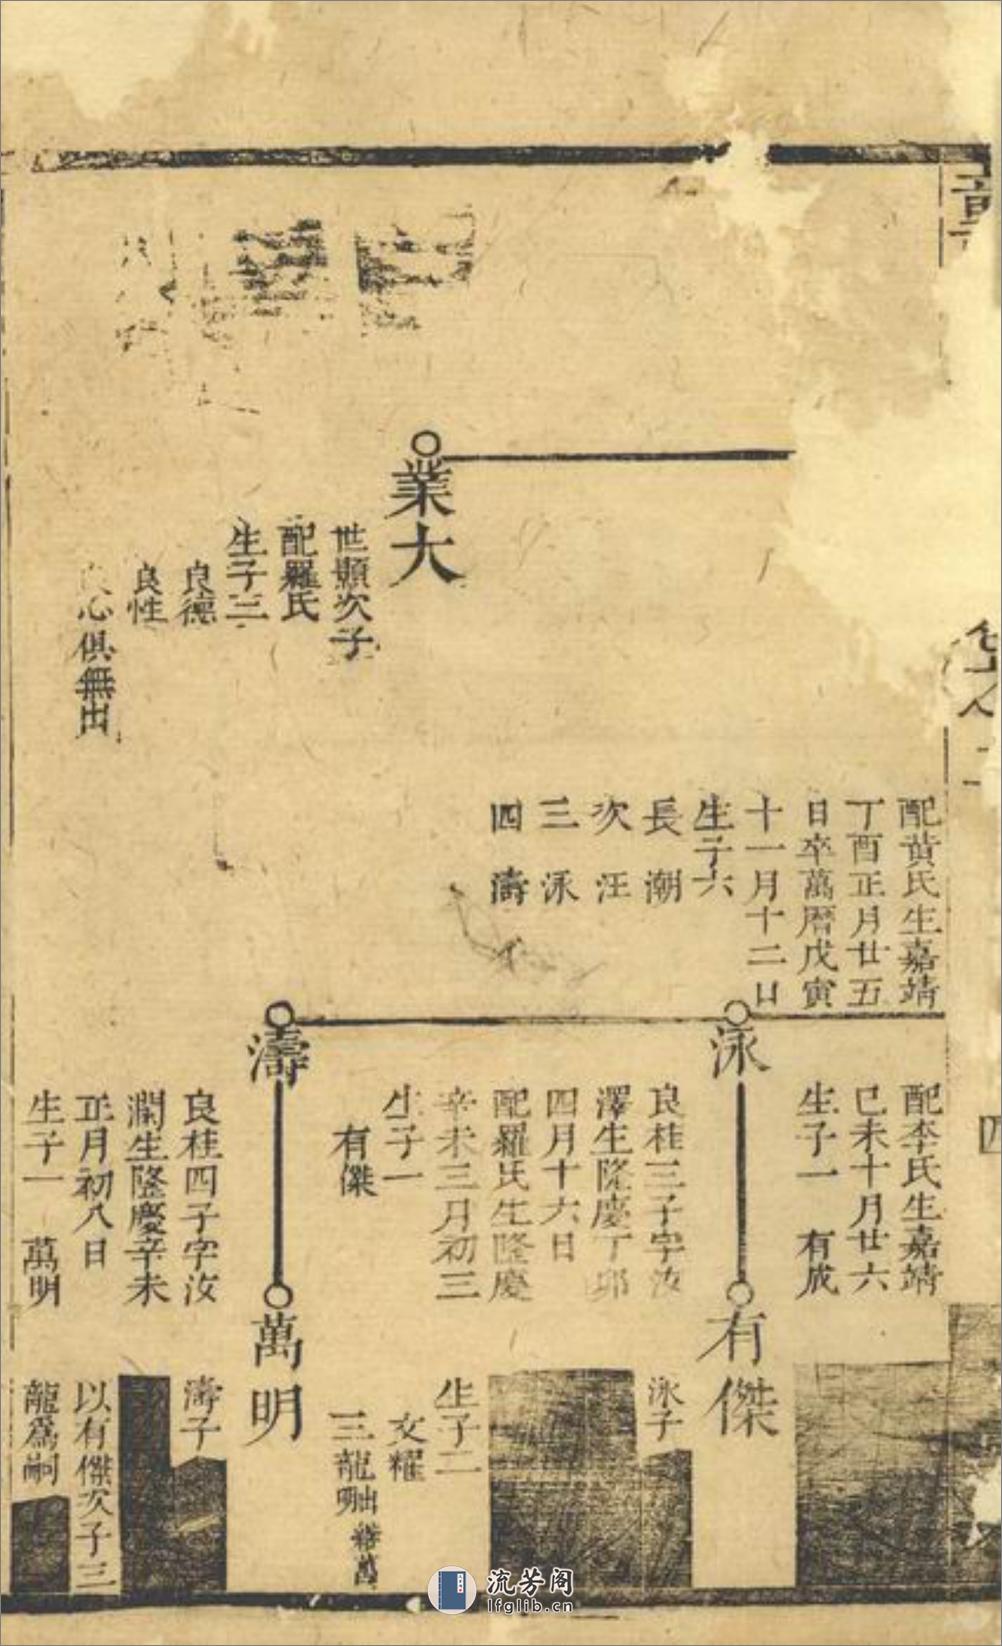 業大
世顯次子
配羅氏
生子三
良德
良性
心俱無出
配黃氏生嘉靖
丁酉正月廿五
日卒萬曆戊寅
十一月十二日
生子六
長 潮
次 汪
三 泳
四 濤
泳
濤
配李氏生嘉靖
己未十月廿六
生子一 有成
良桂三子字汝
澤生隆慶丁卯
四月十六日
配羅氏生隆慶
辛未三月初三
生子一
有傑
良桂四子字汝
瀾生隆慶辛未
正月初八日
生子一 萬明
有傑
泳子
生子二
文耀
三龍出
萬明
濤子
以有傑次子三
龍爲嗣
流芳阁
lfglib.cn